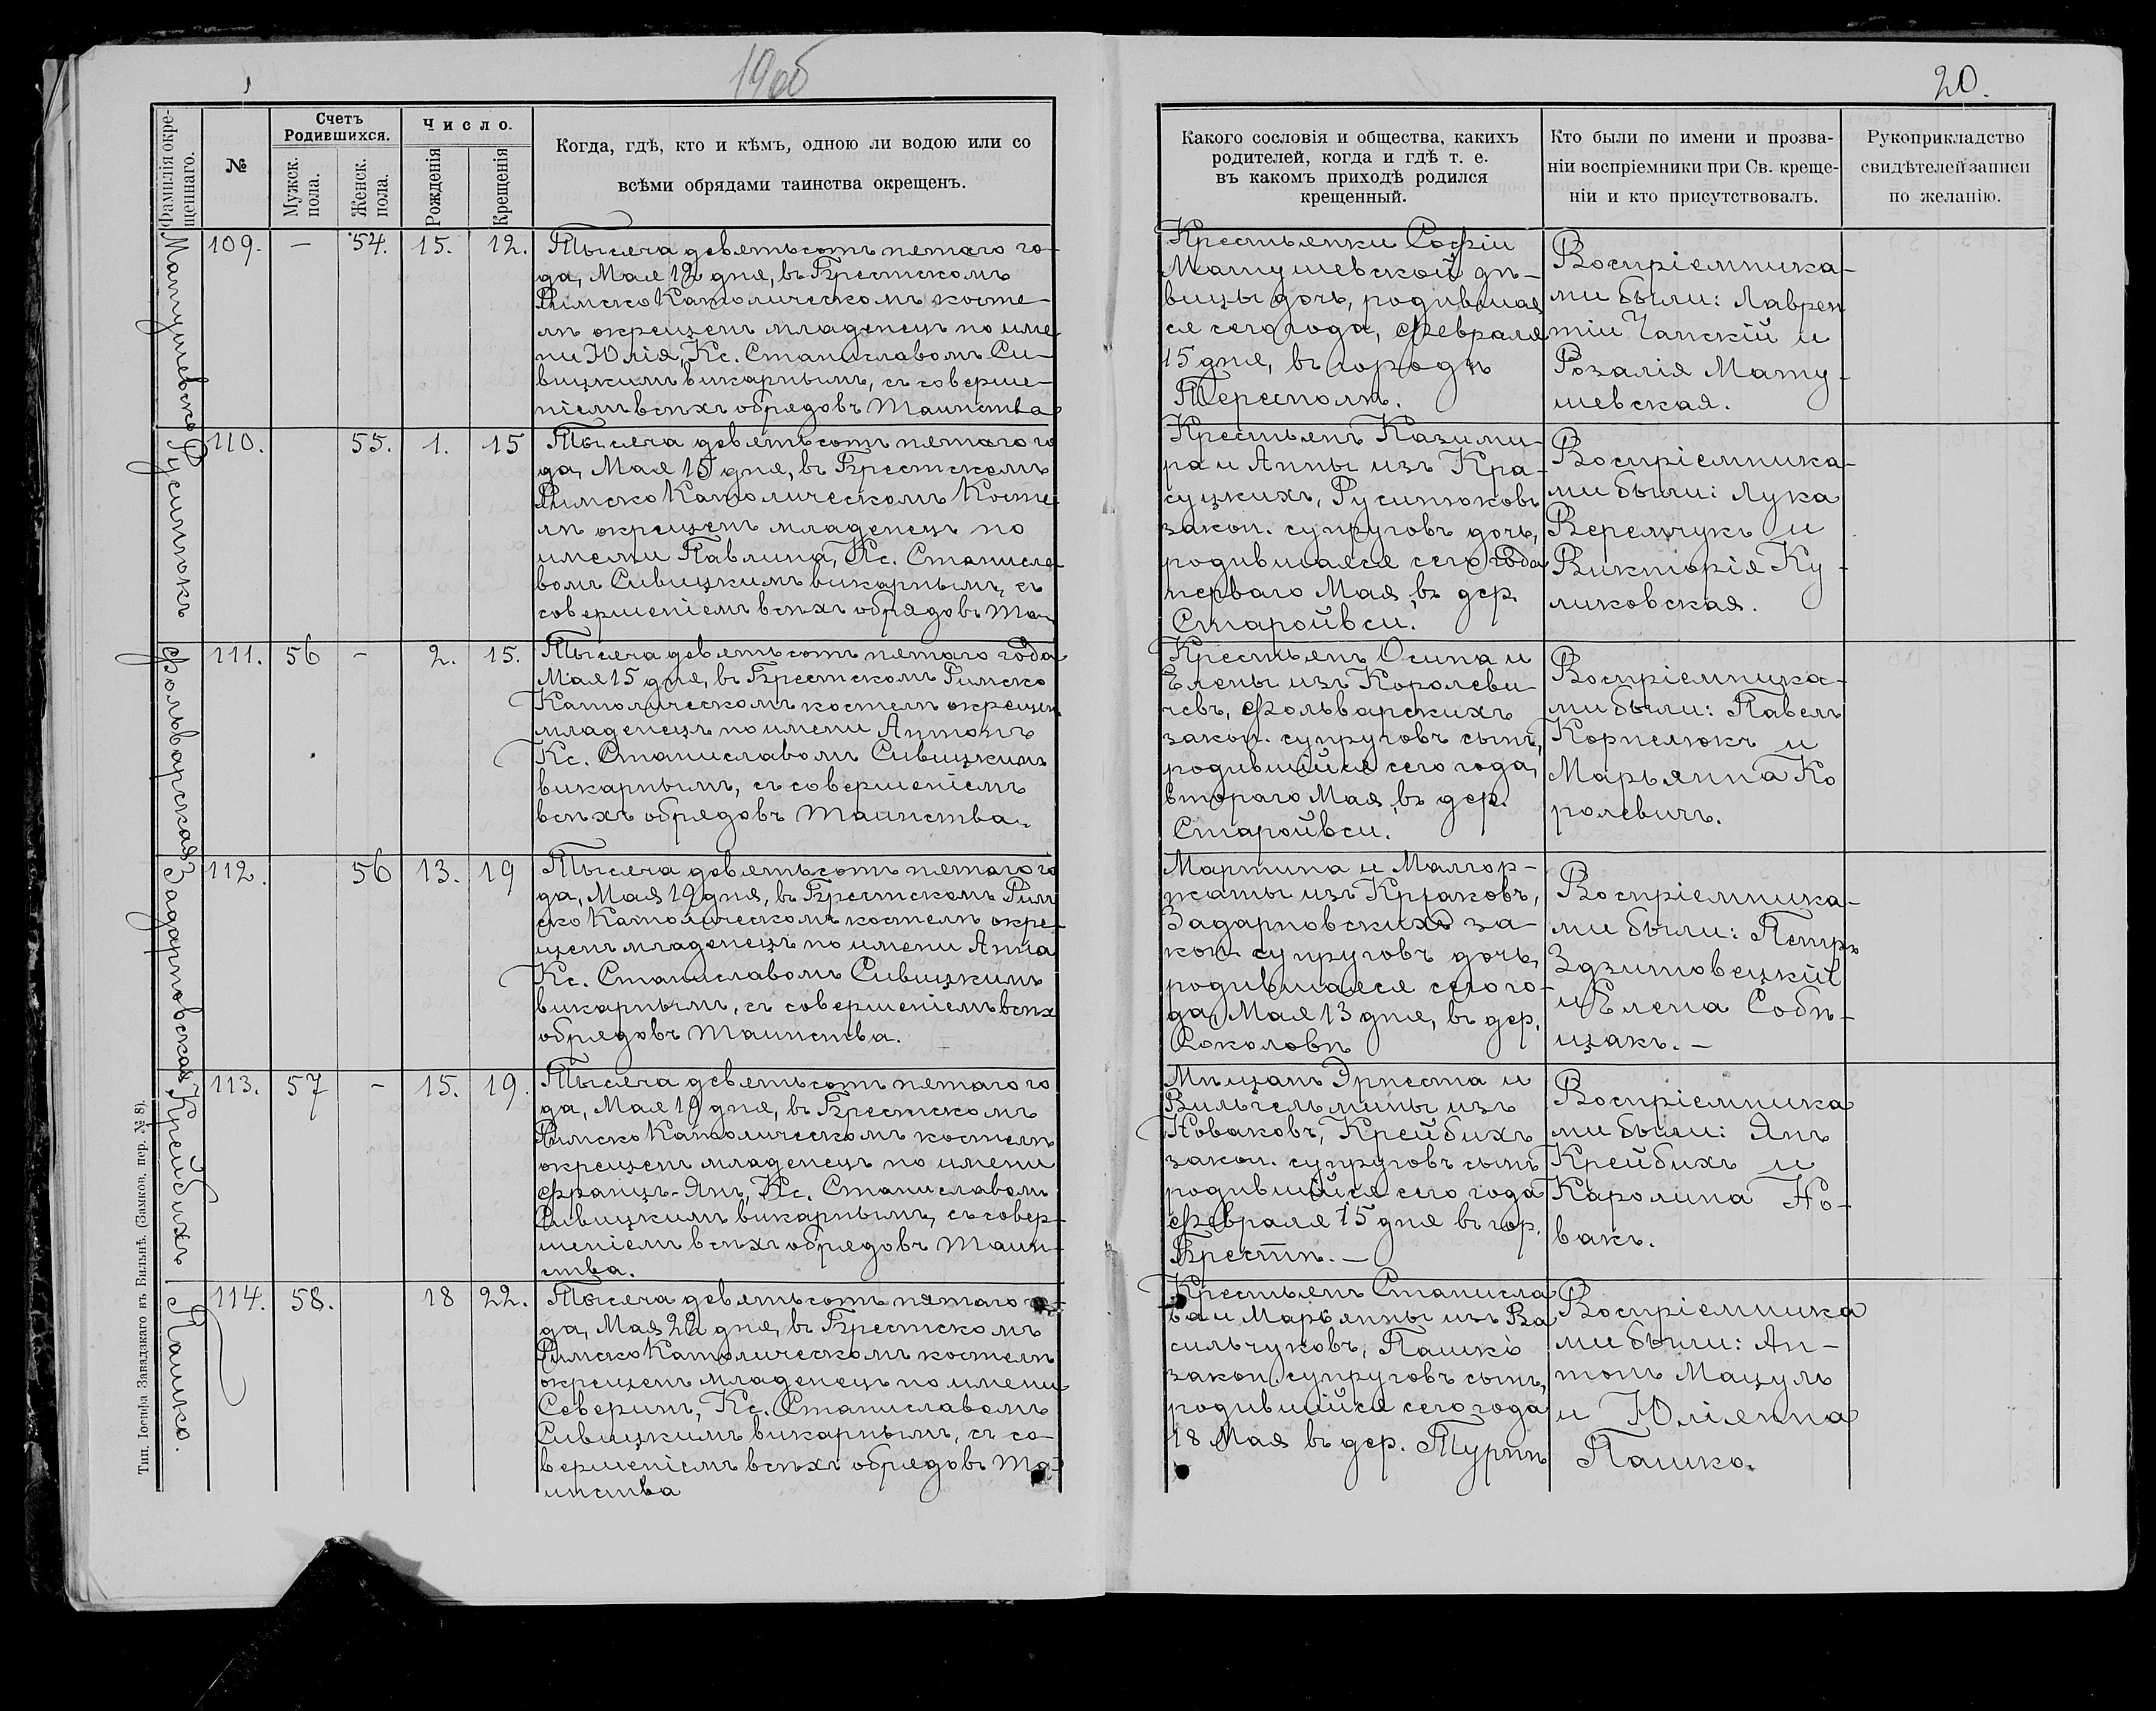 1905
20.
Фамилія окре-
щеннаго.
№
Счетъ
Родившихся.
Мужск.
пола.
Женск.
пола.
Число.
Рожденія
Крещенія
Когда, гдѣ, кто и кѣмъ, одною ли водою или со
всѣми обрядами таинства окрещенъ.
Какого сословія и общества, какихъ
родителей, когда и гдѣ т. е.
въ какомъ приходѣ родился
крещенный.
Кто были по имени и прозва-
ніи воспріемники при Св. креще-
ніи и кто присутствовалъ.
Рукоприкладство
свидѣтелей записи
по желанію.
Матушевская
109. — 54. 15. 12.
Тысяча девятьсотъ пятаго го-
да, Мая 12 дня, въ Брестскомъ
Римско Католическомъ косте-
лѣ окрещенъ младенецъ по име
ни Юлія, Кс. Станиславомъ Си-
вицкимъ викарнымъ, съ соверше-
ніемъ всѣхъ обрядовъ Таинства
Крестьянки Софіи
Матушевской дѣ-
вицы дочь, родившая
ся сего года, Февраля
15 дня, въ городѣ
Тересполѣ.
Воспріемника-
ми были: Лаврен
тіи Чапскій и
Розалія Мату-
шевская.
Русинюкъ
110. 55. 1. 15
Тысяча девятьсотъ пятаго го
да, Мая 15 дня, въ Брестскомъ
Римско Католическомъ Косте-
лѣ окрещенъ младенецъ по
имени Павлина, Кс. Станисла-
вомъ Сивицкимъ викарнымъ, съ
совершеніемъ всѣхъ обрядовъ Та
Крестьянъ Казими-
ра и Анны изъ Кра-
суцкихъ, Русинюковъ
закон. супруговъ дочь,
родившаяся сего года
перваго Мая, въ дер.
Старойвси.
Воспріемника-
ми были: Лука
Веремчукъ и
Викторія Ку-
ликовская.
Фольварская
111. 56 — 2. 15.
Тысяча девятьсотъ пятаго года
Мая 15 дня, въ Брестскомъ Римско
Католическомъ костелѣ окрещен.
младенецъ по имени Антонъ
Кс. Станиславомъ Сивицкимъ
викарнымъ, съ совершеніемъ
всѣхъ обрядовъ Таинства.
Крестьянъ Осипа и
Елены изъ Королеви-
чевъ, Фольварскихъ
закон. супруговъ сынъ,
родившійся сего года,
втораго Мая, въ дер.
Старойвси.
Воспріемника-
ми были: Павелъ
Корнелюкъ и
Марьянна Ко
ролевичъ.
Задарновская
112. 56 13. 19
Тысяча девятьсотъ пятаго го
да, Мая 19 дня, въ Брестскомъ Рим
ско Католическомъ костелѣ окре-
щенъ младенецъ по имени Анна
Кс. Станиславомъ Сивицкимъ
викарнымъ, съ совершеніемъ всѣх
обрядовъ Таинства.
Мартина и Малгор-
жаты изъ
Задарновскихъ за-
кон. супруговъ дочь,
родившаяся сего го-
да, Мая 13 дня, въ дер.
Соколовѣ
Воспріемника-
ми были: Петръ
Здзитовецкій
и Елена Собѣ-
щакъ. —
Крейбихъ
113. 57 — 15. 19.
Тысяча девятьсотъ пятаго го
да, Мая 19 дня, въ Брестскомъ
Римско Католическомъ костелѣ
окрещенъ младенецъ по имени
Францъ-Янъ, Кс. Станиславомъ
Сивицкимъ викарнымъ, съ совер-
шеніемъ всѣхъ обрядовъ Таин-
ства.
Мѣщанъ Эрнеста и
Вильгельмины изъ
Новаковъ, Крейбихъ
закон. супруговъ сынъ
родившійся сего года
Февраля 15 дня въ гор.
Брестѣ. —
Воспріемника
ми были: Янъ
Крейбихъ и
Каролина Но-
вакъ.
Пашко.
114. 58. 18 22.
Тысяча девятьсотъ пятаго го-
да, Мая 22 дня, въ Брестскомъ
Римско Католическомъ костелѣ
окрещенъ младенецъ по имени
Северинъ, Кс. Станиславомъ
Сивицкимъ викарнымъ, съ со-
вершеніемъ всѣхъ обрядовъ Та-
инства
Крестьянъ Станисла
ва и Марьянны изъ Ва
сильчуковъ, Пашко
закон. супруговъ сынъ,
родившійся сего года
18 Мая въ дер. Турнѣ
Воспріемника
ми были: Ан-
тонъ Мацуль
и Юліянна
Пашко.
Тип. Іосифа Завадзкаго въ Вильнѣ. (Замков. пер. № 8).